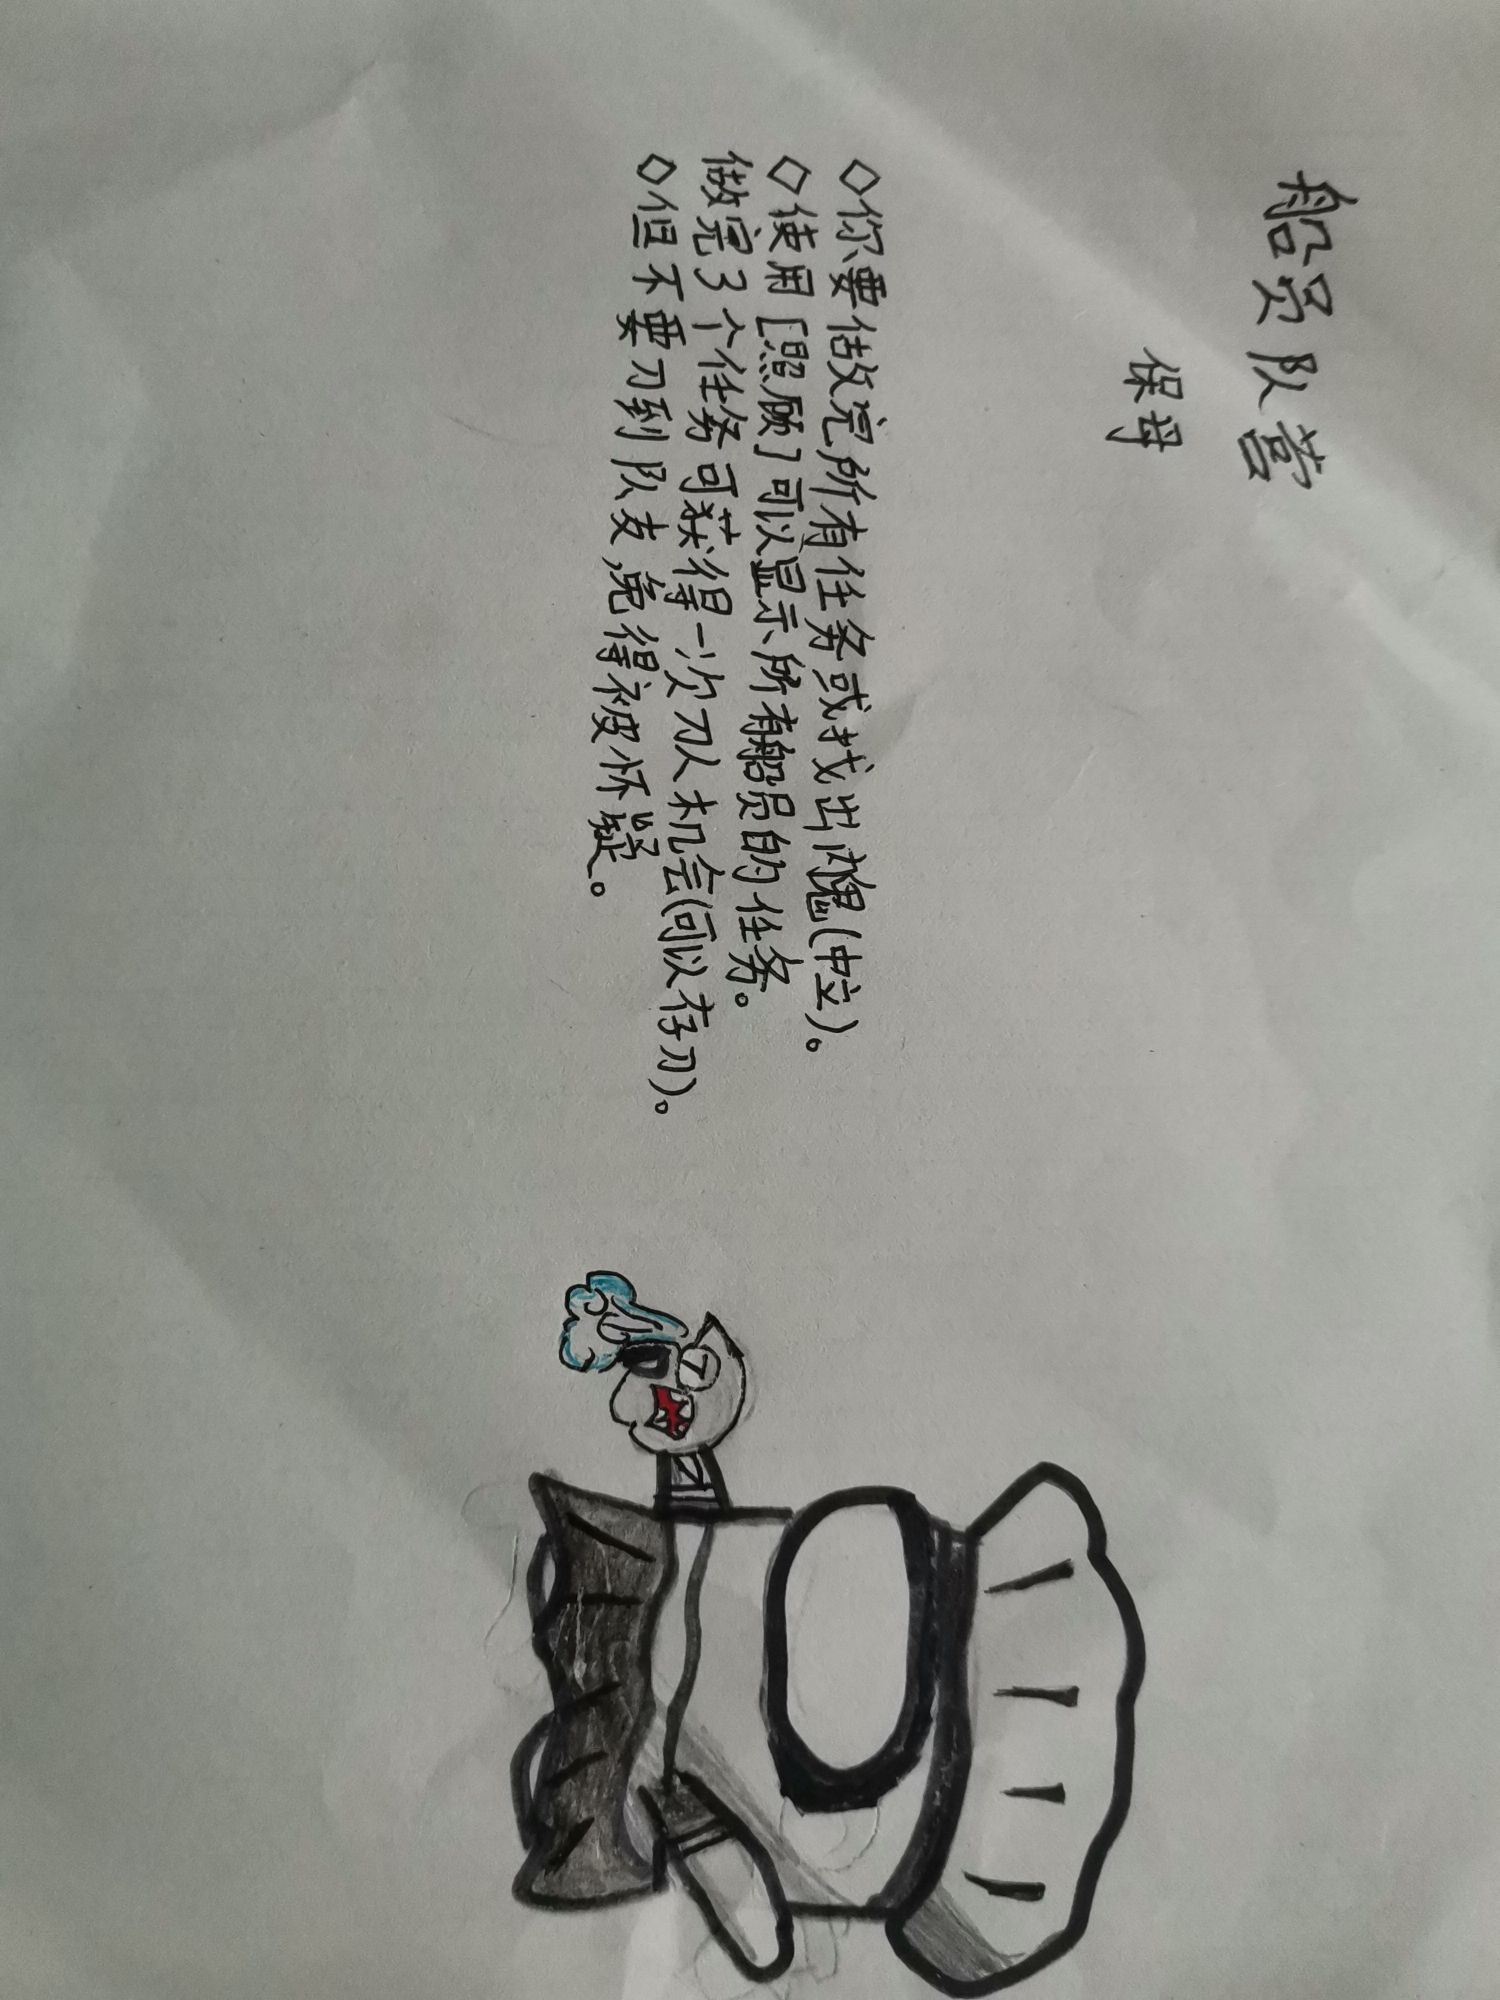 船员队营
保母
◇你要估做完所有任务或找出内鬼(中立)。
◇使用[照顾]可以显示所有船员的任务。
做完了个任务可获得一次刀人机会(可以存刀)。
◇但不要刀到队友,免得被怀疑。